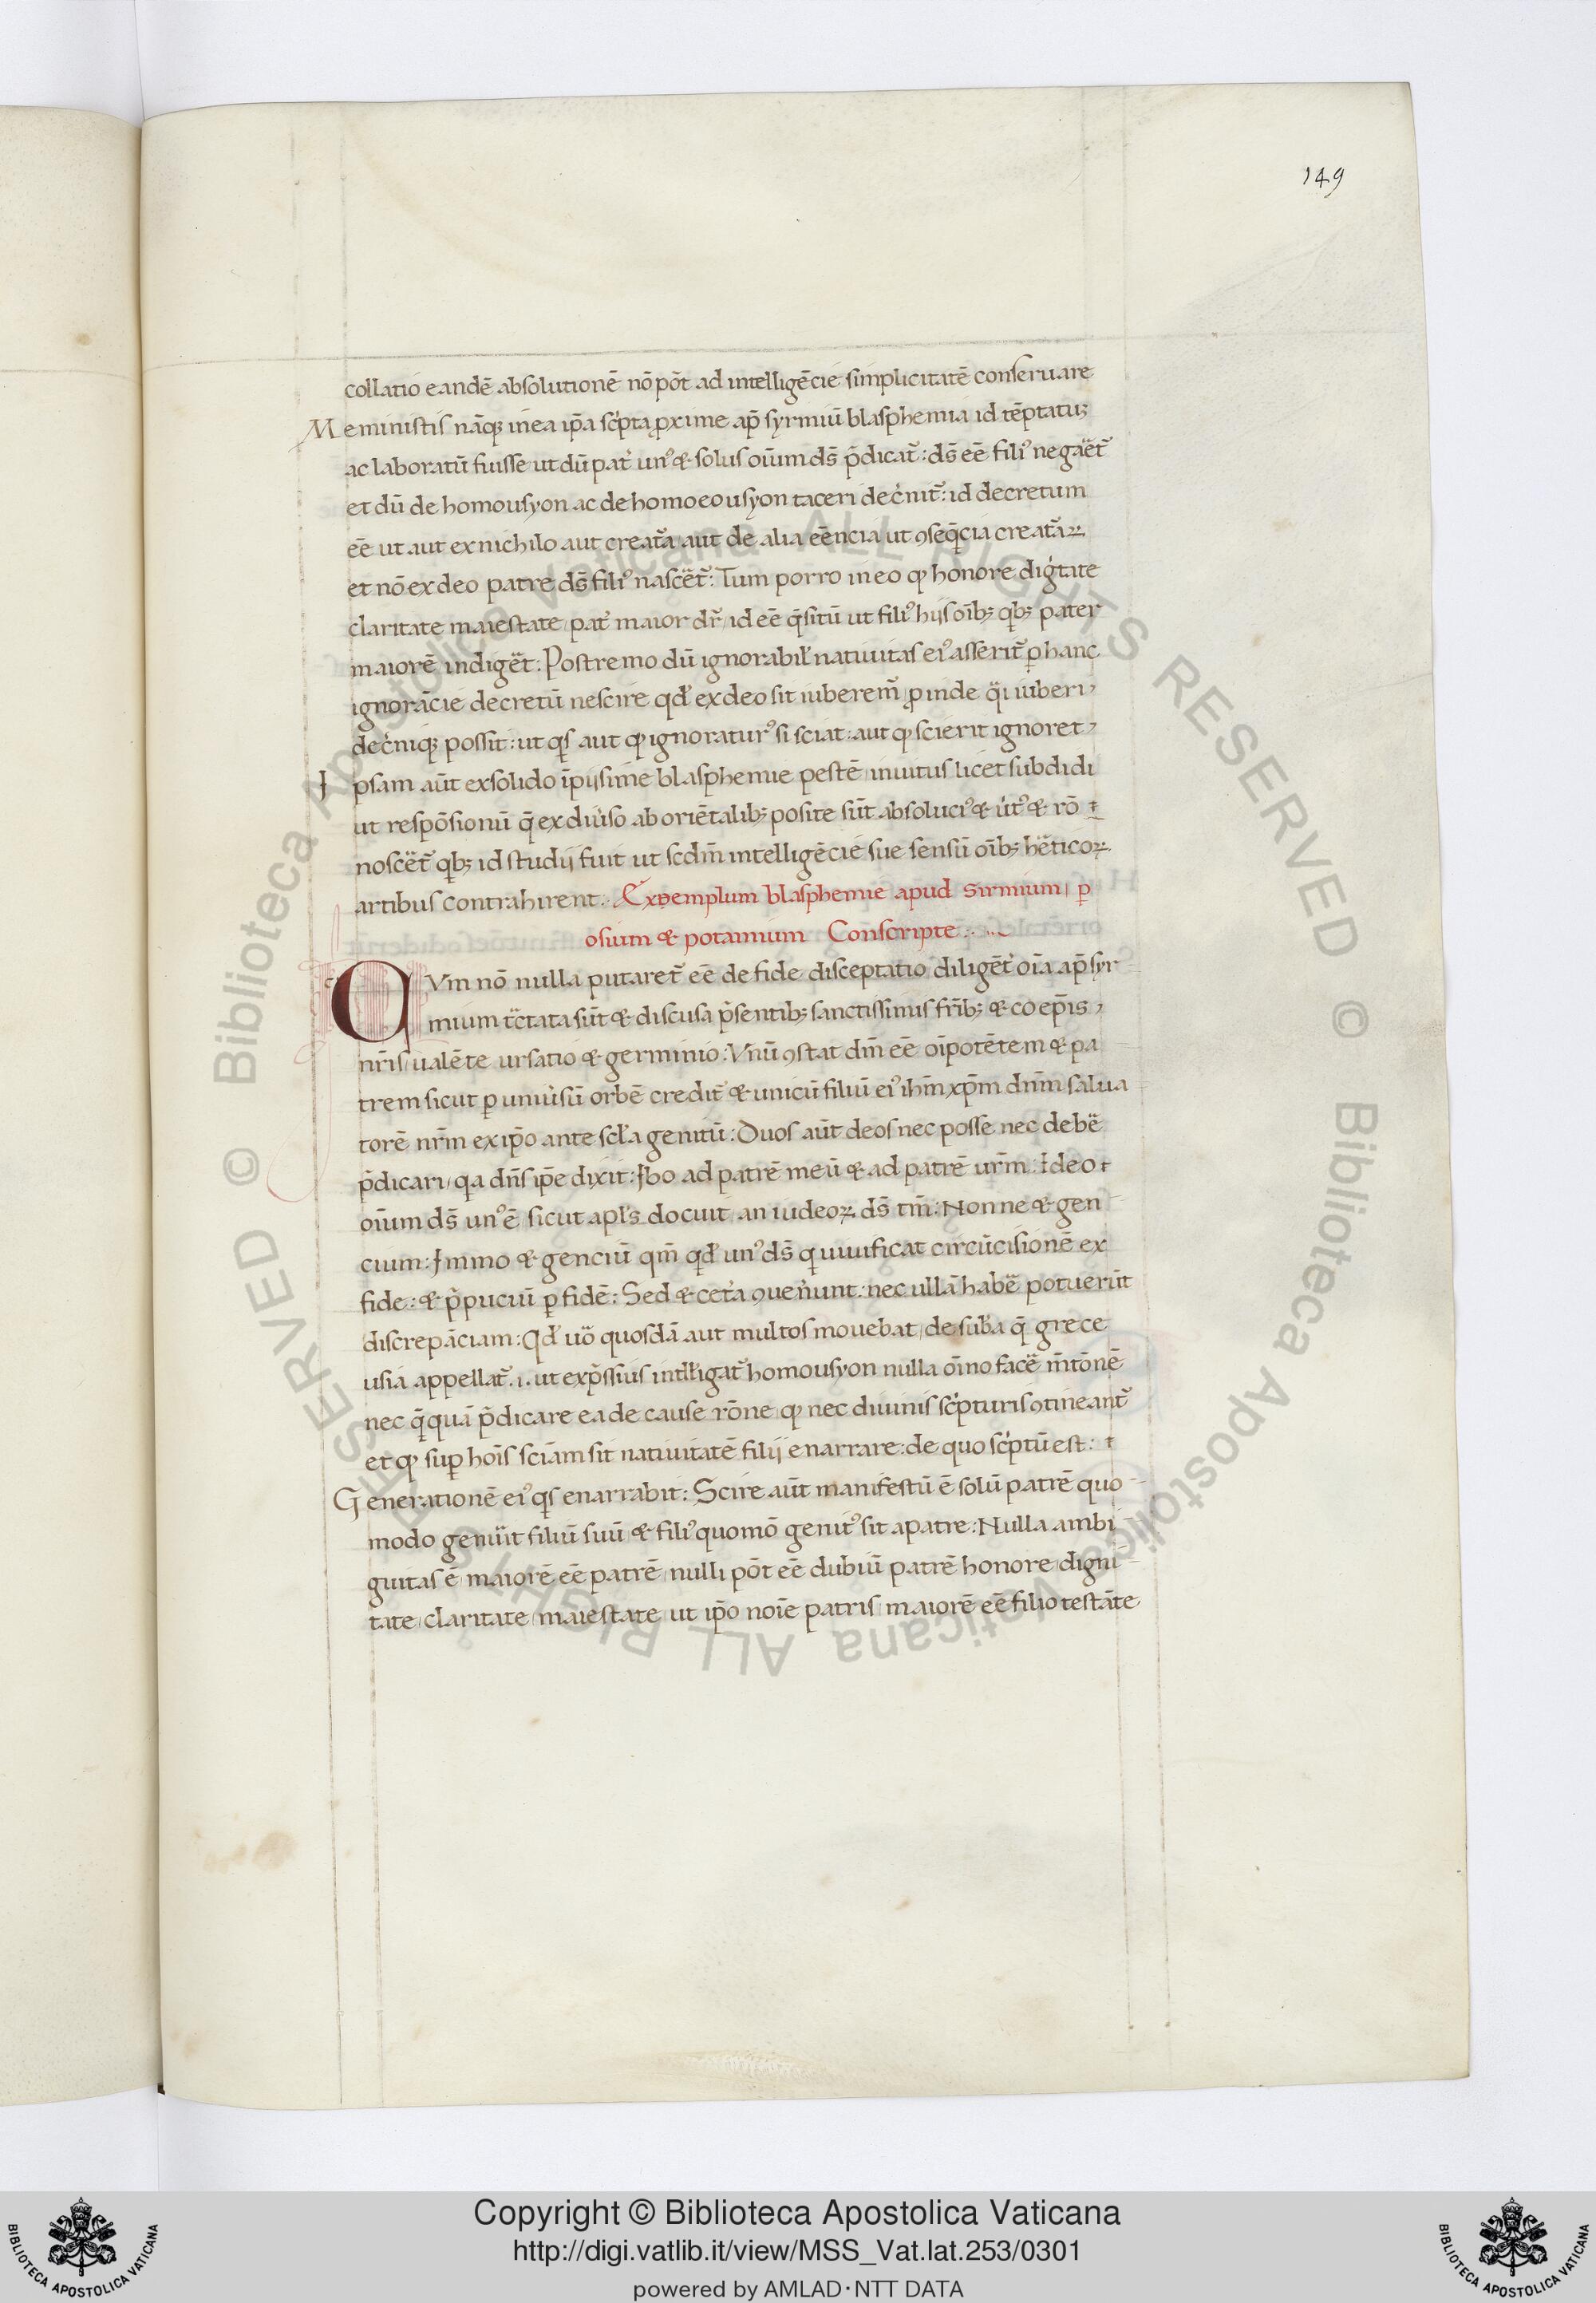 149
collatio eandē absolutionē nō pōt ad intelligēcie simplicitatē conseruare
Meministis nāq; in ea ip̄a scͥpta ꝓxime ap̄ syrmiū blasphemia id tēptatū
ac laboratū fuisse ut dū pat͛ unꝰ & solus oīum ds̄ p̄dicat᷑: ds̄ eē filiꝰ negaret᷑
et dū de homousyon ac de homoeousyon taceri dec͛nit᷑: id decretum
eē ut aut ex nichilo aut creat᷑a aut de alia eēncia ut ꝯseq̄cia creat᷑aꝝ
et nō ex deo patre ds̄ filiꝰ nascēt᷑: Tum porro in eo ꝙ honore digͥtate
claritate maiestate pat͛ maior dr̄ id eē q̄situ̅ ut filiꝰ hijs oīb; qͥb; pater
maiorē indiget: Postremo dū ignorabil̓ natiuitas eiꝰ asserit᷑ ꝑ hanc
ignorācie decretū nescire qd̓ ex deo sit iuberem᷑ ꝓinde qͣi iuberi
dec͛niq; possit: ut qͥs aut ꝙ ignoraturꝰ si sciat: aut ꝙ scierit ignoret
Ipsam aūt ex solido īpijsime blasphemie pestē inuitus licet subdidi
ut respōsionū q̄ ex diu͛so ab oriētalib; posite sūt absoluciꝰ & u͛tꝰ & rō
noscet᷑ qͥb; id studij fuit ut scdm̄ intelligēcie sue sensū oīb; hͤticoꝝ
artibus contrahirent. Exemplum blasphemie apud Sirmium ꝑ
osium & potamium Conscripte
CVm nō nulla putaret᷑ eē de fide disceptatio diligēt͛ oīa ap̄ syr
mium tͣctata sūt & discusa p̄sentib; sanctissimis frīb; & coep̄is
nr̄is ualēte ursatio & germinio: Vnū ꝯstat dm̄ eē oīpotētem & pa
trem sicut ꝑ uniu͛sū orbē credit᷑ & unicū filiū eiꝰ ih̄m xp̄m dn̄m salua
torē nr̄m ex ip̄o ante scl̓a genitū: Duos aūt deos nec posse nec debē
p̄dicari qͥa dn̄s ip̄e dixit: Ibo ad patrē meū & ad patrē ur̄m: Ideo
oīum ds̄ unꝰ ē sicut apl̓s docuit an iudeoꝝ ds̄ tm̄: Nonne & gen
cium: Immo & genciū qm̄ qd̓ unꝰ ds̄ qͥ uiuificat circūcisionē ex
fide: & p̄puciū ꝑ fidē: Sed & cet͛a ꝯuen͛unt: nec ullā habē potuerūt
discrepāciam: Qd̓ uͦo quosdā aut multos mouebat de sub͛a q̄ grece
usia appellat᷑ .i. ut exp̄ssius intll̓igat᷑ homousyon nulla oīno facē m̄tōnē
nec q̄quā p̄dicare ea de cause rōne ꝙ nec diuinis scͥpturis ꝯtineant᷑
et ꝙ suꝑ hoīs sciām sit natiuitatē filij enarrare: de quo scͥptū est:
Generationē eiꝰ qͥs enarrabit: Scire aūt manifestū ē solū patrē quo
modo genuit filiū suū & filiꝰ quomō genitꝰ sit a patre: Nulla ambi
guitas ē maiorē eē patrē nulli pōt eē dubiū patrē honore digni
tate claritate maiestate ut ip̄o noīe patris maiorē eē filio testāte
Copyright © Biblioteca Apostolica Vaticana
http://digi.vatlib.it/view/MSS_Vat.lat.253/0301
powered by AMLAD·NTT DATA
BIBLIOTECA APOSTOLICA VATICANA
BIBLIOTECA APOSTOLICA VATICANA
© Biblioteca Apostolica Vaticana ALL RIGHTS RESERVED © Biblioteca Apostolica Vaticana ALL RIGHTS RESERVED